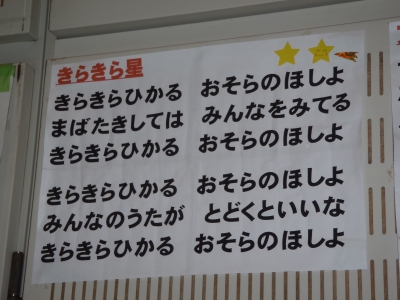 きらきら星
きらきらひかる　おそらのほしよ
まばたきしては　みんなをみてる
きらきらひかる　おそらのほしよ
きらきらひかる　おそらのほしよ
みんなのうたが　とどくといいな
きらきらひかる　おそらのほしよ